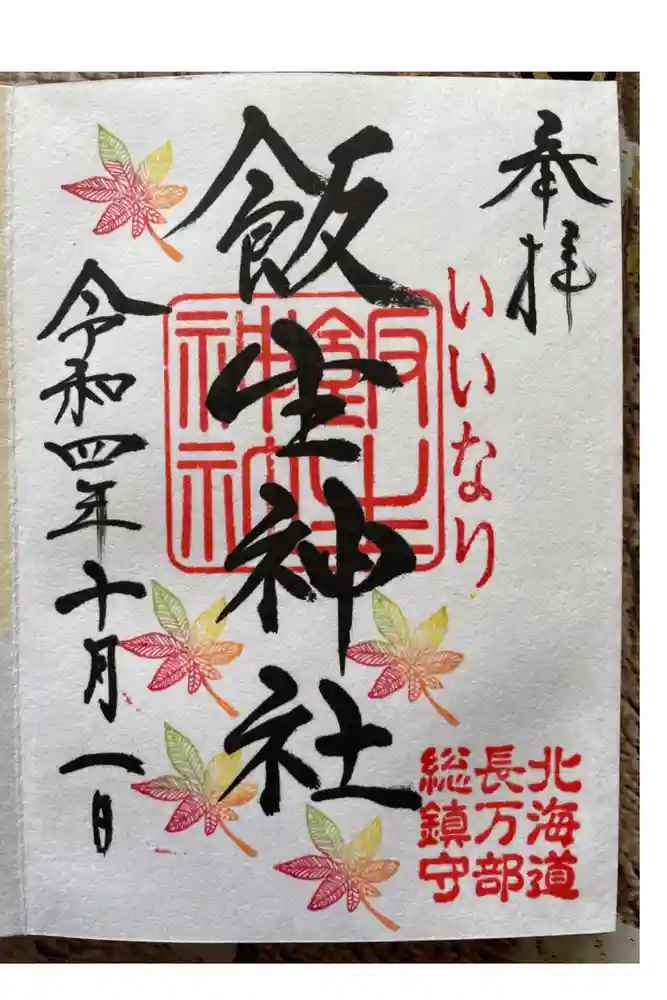 奉拝
いいなり
飯生神社
飯生神社
令和四年十月一日
北海道
長万部
総鎮守